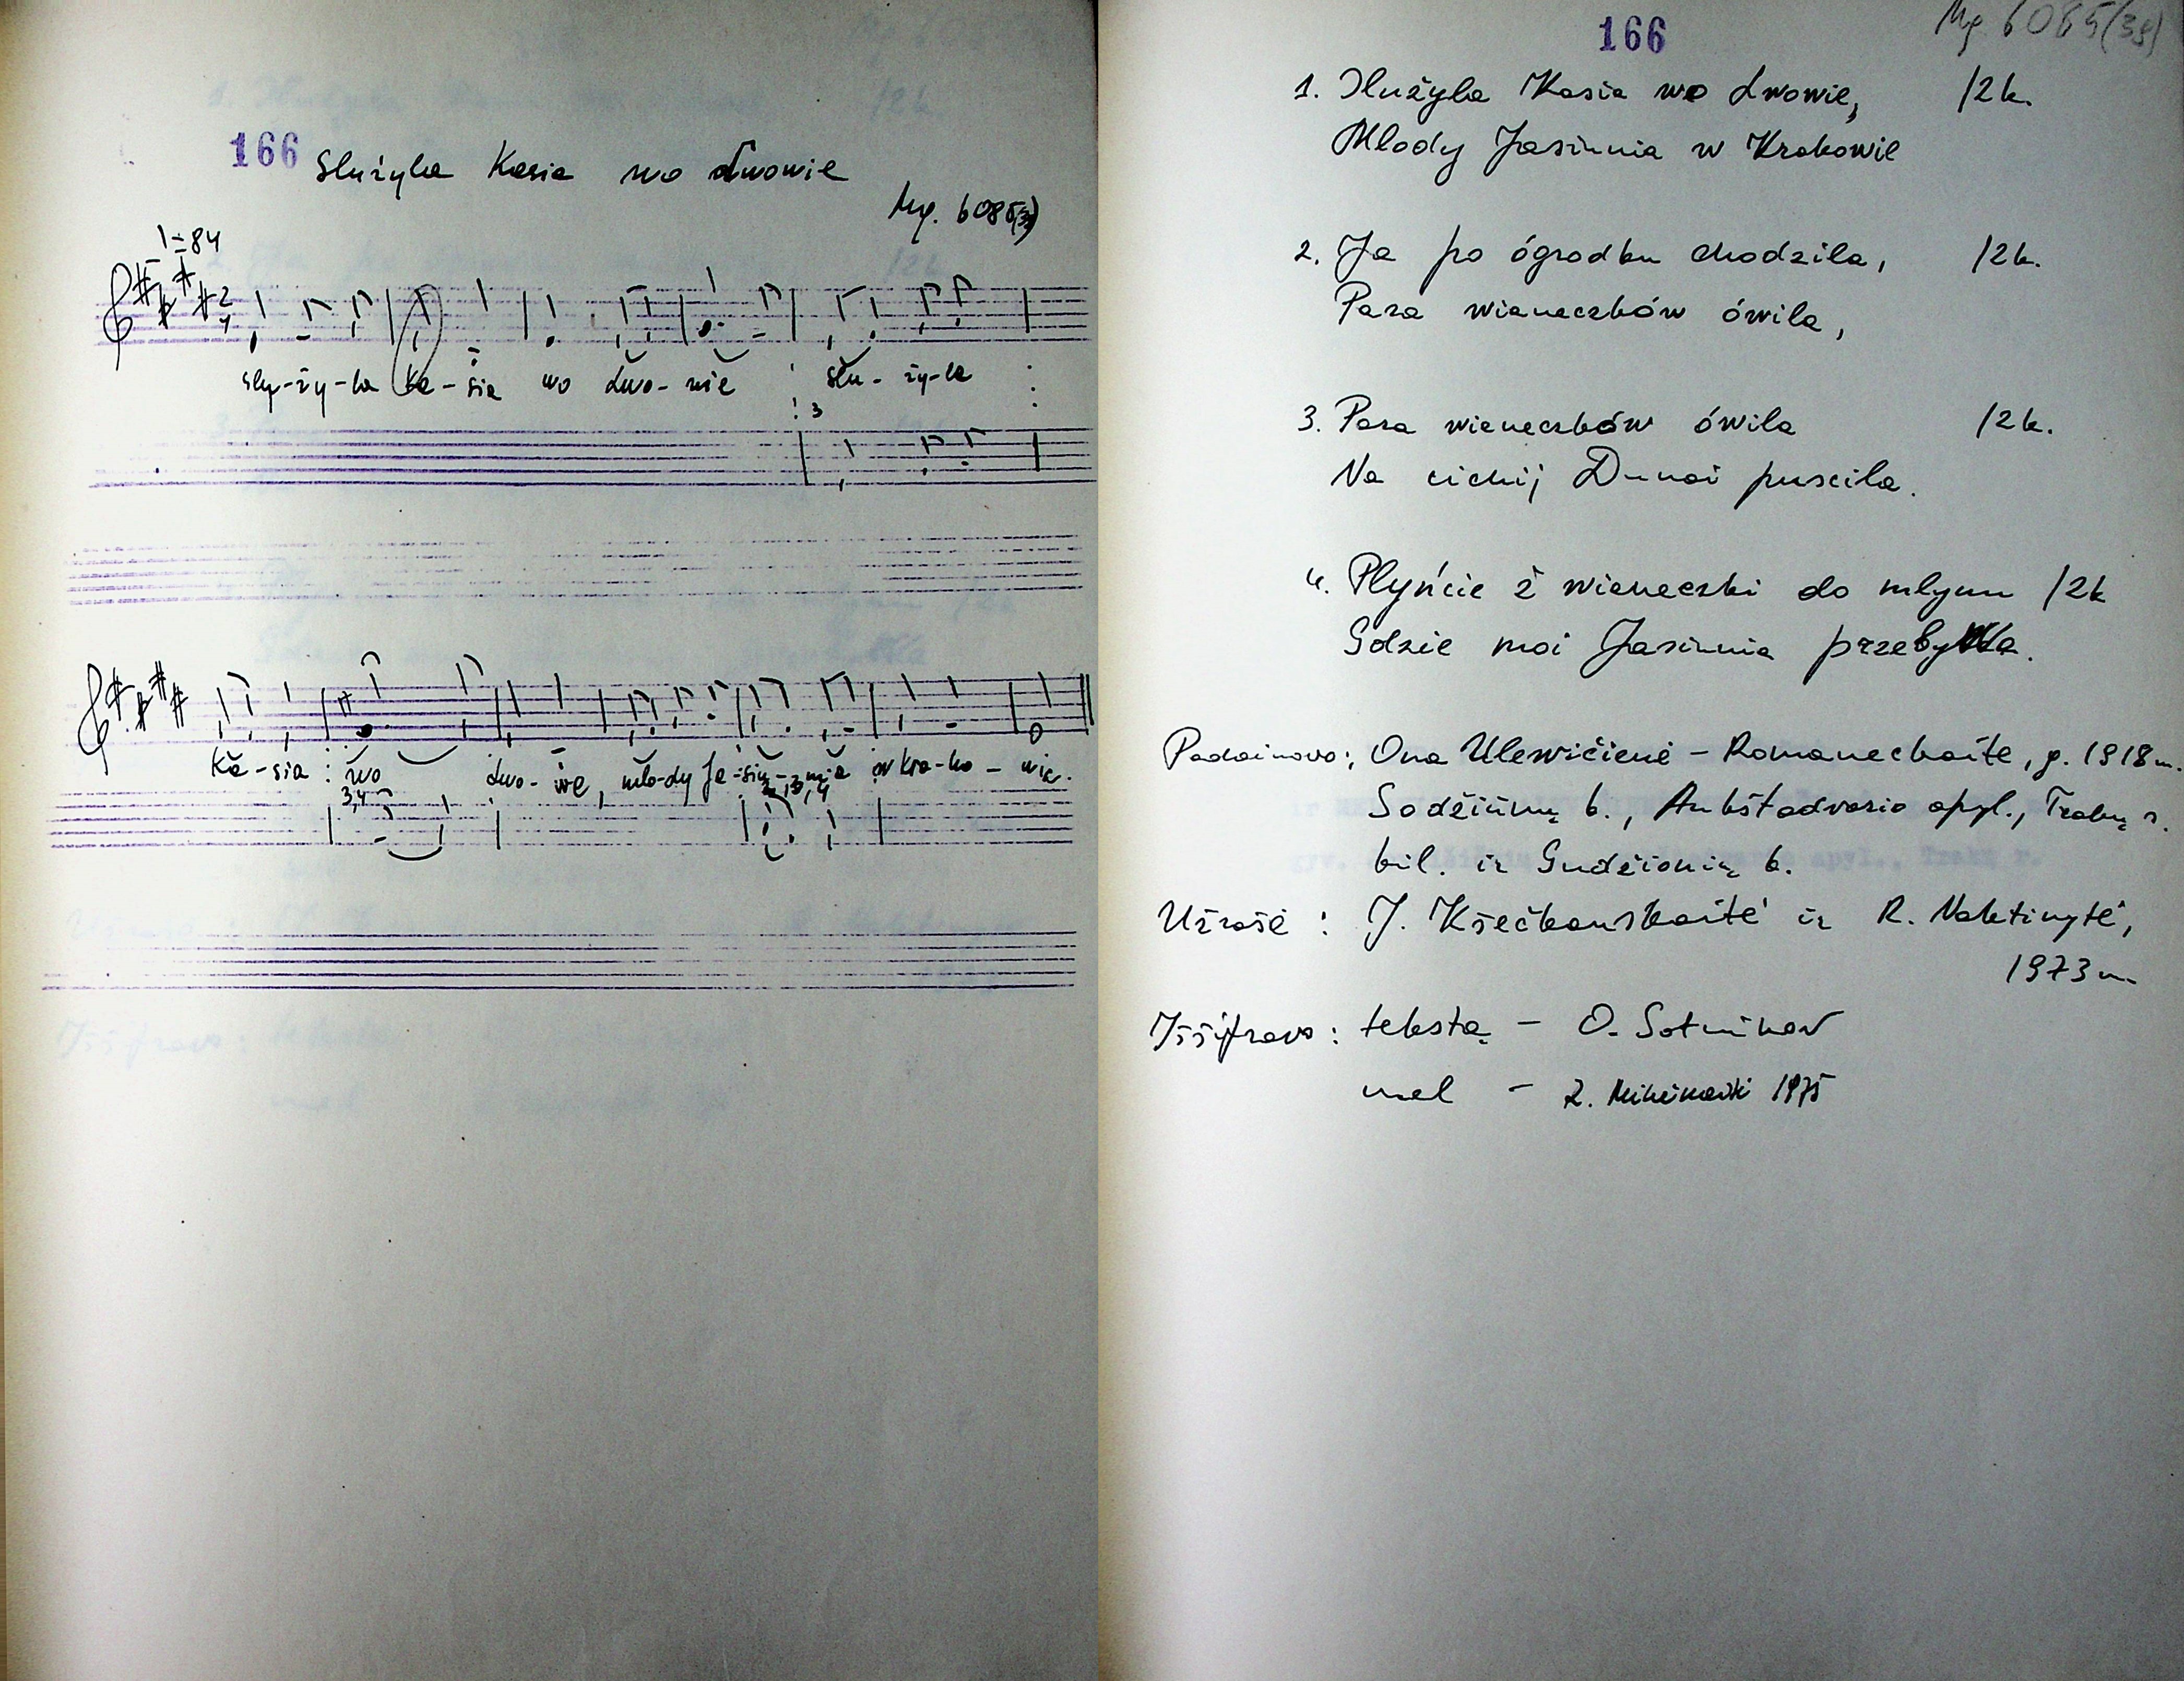 166 Służyla Kasia wo Lwowie
Mg. 6085(39)
♩=84
2
4
slu-ży-la Ka-sia wo Lwo-wie słu-ży-la
3
Ka-sia wo Lwo-we, mlo-dy Ja-siu-nia w Kra-ko-wie.
3,4 2,3,4
166
Mg 6085(39)
1. Służyla Kasia wo Lwowie, /2k.
Mlody Jasiunia w Krakowie
2. Ja po ógrodku chodzila, /2k.
Para wianeczków ówila,
3. Para wianeczków ówila /2k.
Na cichij Dunai puscila.
4. Plyńcie ż wianeczki do mlynu /2k
Gdzie moi Jasiunia przebywa.
Padainavo: Ona Ulevičienė - Romaneckaitė, g. 1918 m.
Sodžiūnų b., Aukštadvario apyl., Trakų r.
bil. ir Gudžionių b.
Užrašė : J. Kšečkauskaitė ir R. Naktinytė,
1973 m
Iššifravo: tekstą - O. Sotnikov
mel - Z. 1975